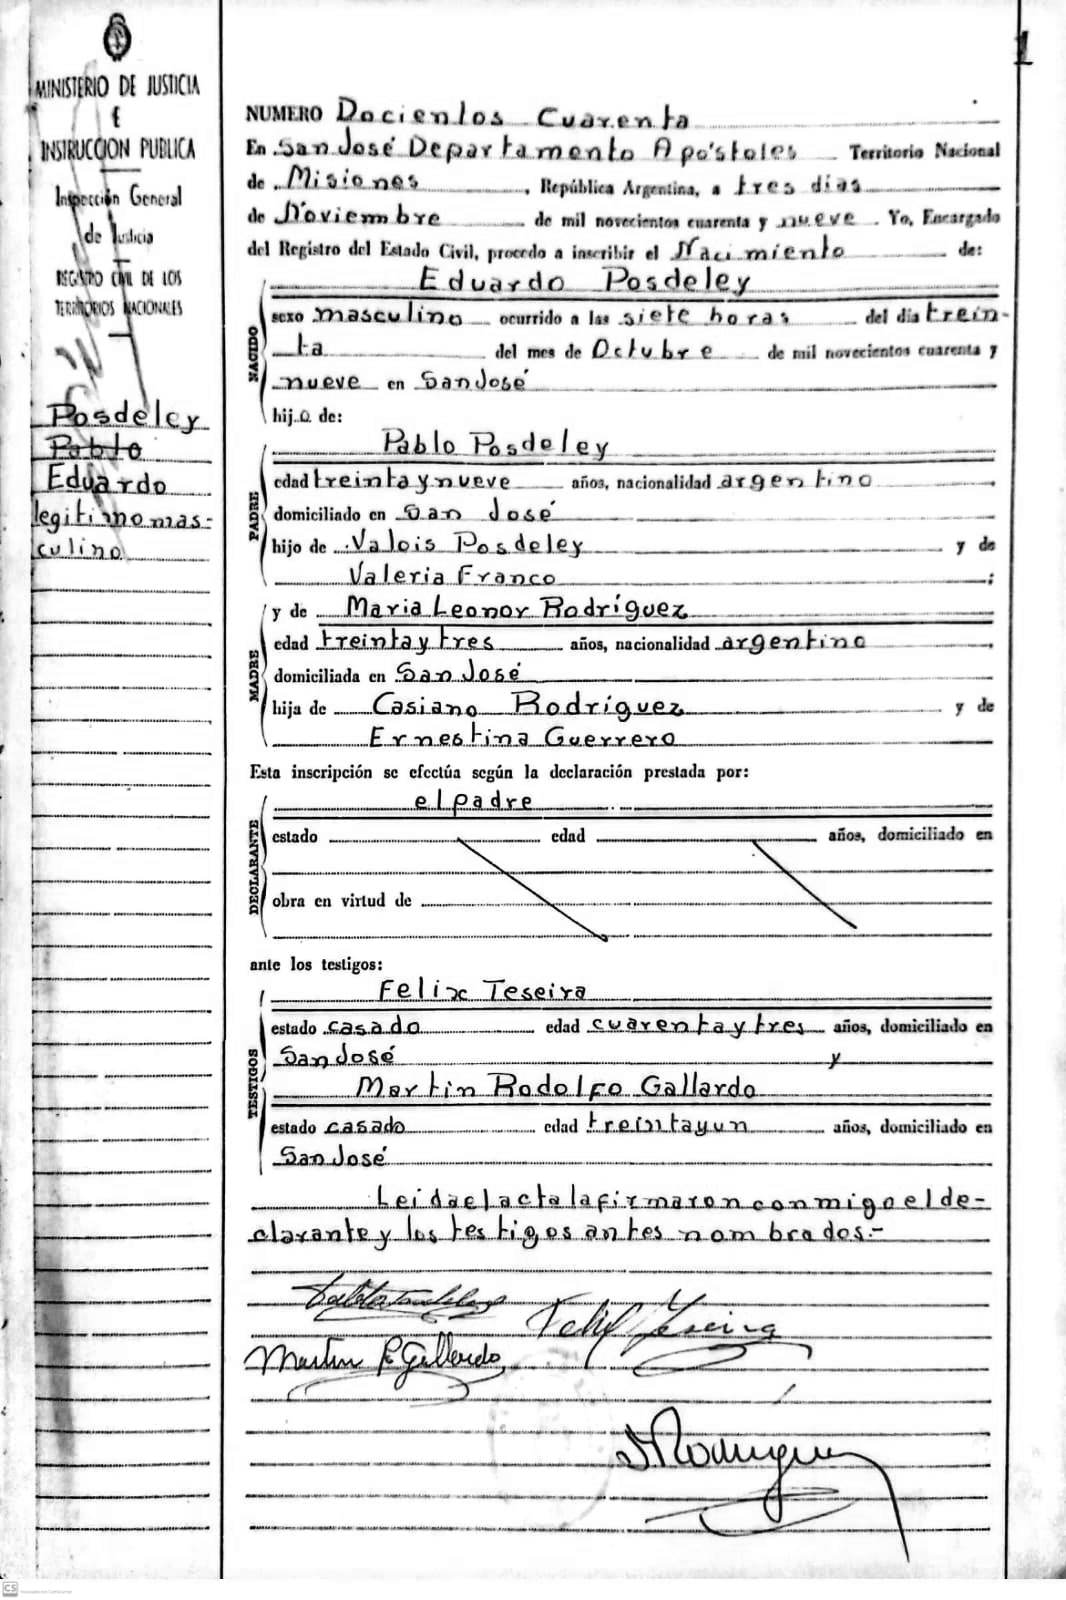 1
MINISTERIO DE JUSTICIA
E
INSTRUCCION PUBLICA
Inspección General
de Justicia
REGISTRO CIVIL DE LOS
TERRITORIOS NACIONALES
Posdeley
Pablo
Eduardo
legitimo mas-
culino
NUMERO Docientos Cuarenta
En San José Departamento Apóstoles Territorio Nacional
de Misiones, República Argentina, a tres días
de Noviembre de mil novecientos cuarenta y nueve. Yo, Encargado
del Registro del Estado Civil, procedo a inscribir el Nacimiento de:
Eduardo Posdeley
NACIDO
sexo masculino ocurrido a las siete horas del día trein-
ta del mes de Octubre de mil novecientos cuarenta y
nueve en San José
hijo de:
Pablo Posdeley
PADRE
edad treinta y nueve años, nacionalidad argentino,
domiciliado en San José
hijo de Valois Posdeley y de
Valeria Franco;
y de Maria Leonor Rodríguez
MADRE
edad treinta y tres años, nacionalidad argentina
domiciliada en San José
hija de Casiano Rodríguez y de
Ernestina Guerrero
Esta inscripción se efectúa según la declaración prestada por:
el padre
DECLARANTE
estado edad años, domiciliado en
obra en virtud de
ante los testigos:
Felix Teseira
TESTIGOS
estado casado edad cuarenta y tres años, domiciliado en
San José y
Martin Rodolfo Gallardo
estado casado edad treintayun años, domiciliado en
San José
Leida el acta la firmaron conmigo el de-
clarante y los testigos antes nombrados.-
Felix Teseira
Martin R Gallardo
Rodriguez
CS